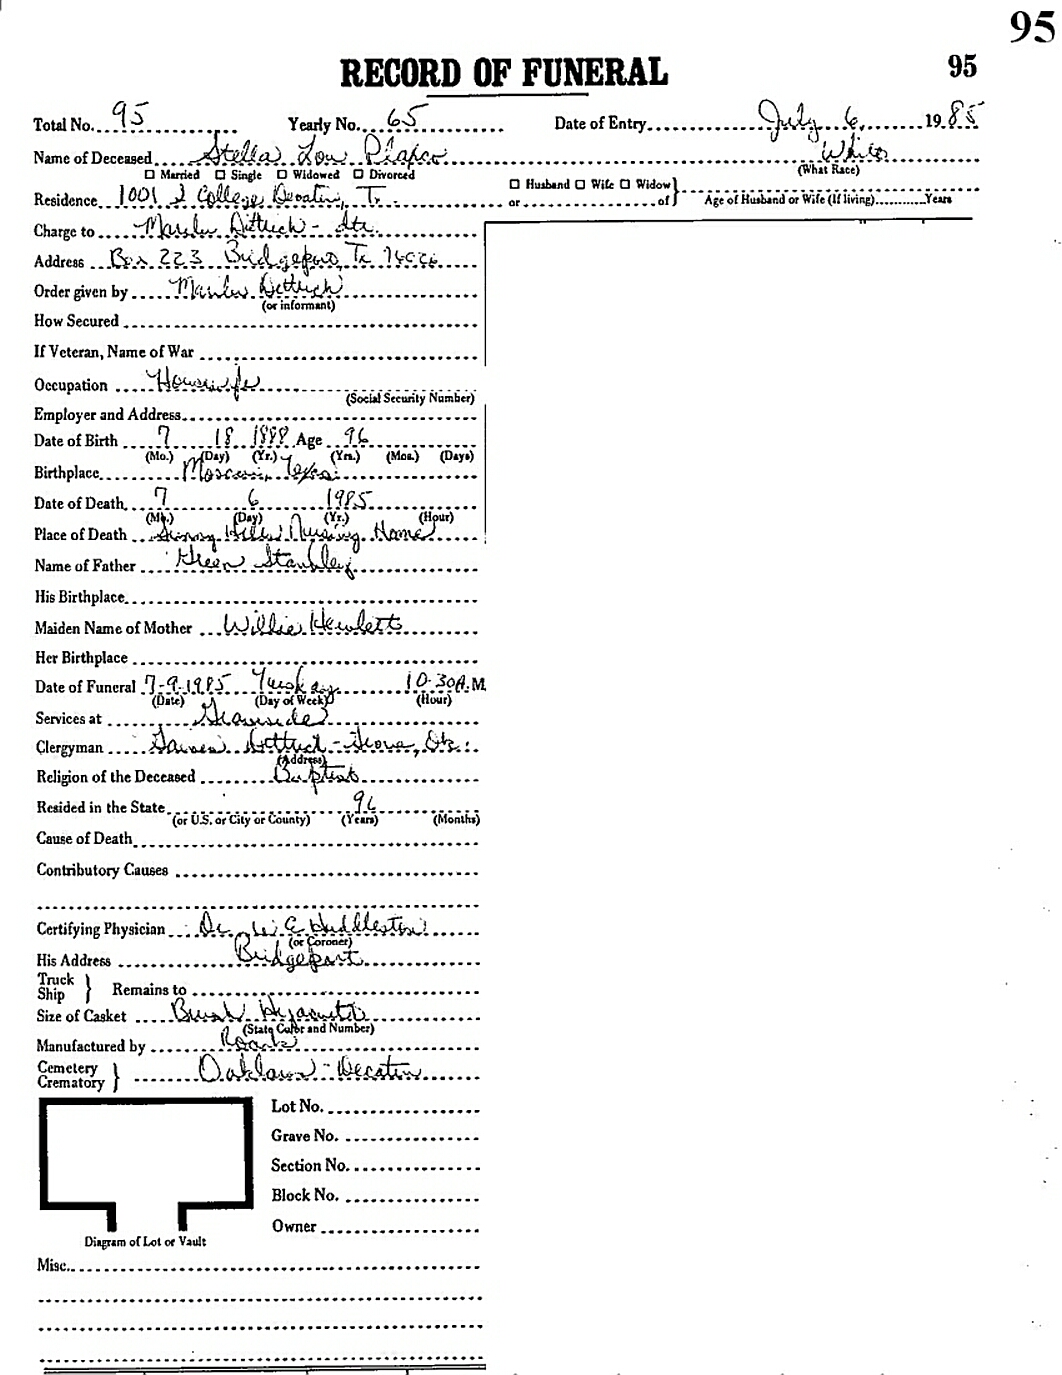 95
RECORD OF FUNERAL 95
Total No. 95 Yearly No. 65 Date of Entry July 6, 1985
Name of Deceased Stella Lou White
(What Race)
☐ Married ☐ Single ☐ Widowed ☐ Divorced
☐ Husband ☐ Wife ☐ Widow }
Residence 1001 S College, Decatur, Tx. or of Age of Husband or Wife (If living) Years
Charge to Dittrich - dtr.
Address Box 223 Bridgeport, Tx 76026
Order given by Dittrich
(or informant)
How Secured
If Veteran, Name of War
Occupation Housewife
(Social Security Number)
Employer and Address
Date of Birth 7 18 1888 Age 96
(Mo.) (Day) (Yr.) (Yrs.) (Mos.) (Days)
Birthplace Texas
Date of Death 7 6 1985
(Mo.) (Day) (Yr.) (Hour)
Place of Death Hills Nursing Home
Name of Father Green
His Birthplace
Maiden Name of Mother Willie Hewlett
Her Birthplace
Date of Funeral 7-9-1985 Tuesday 10:30 A.M.
(Date) (Day of Week) (Hour)
Services at Graveside
Clergyman Dittrich - Grove, Ok.
(Address)
Religion of the Deceased Baptist
Resided in the State 96
(or U.S. or City or County) (Years) (Months)
Cause of Death
Contributory Causes
Certifying Physician Dr. Huddleston
(or Coroner)
His Address Bridgeport
Truck
Ship } Remains to
Size of Casket
(State Color and Number)
Manufactured by
Cemetery
Crematory } Oaklawn - Decatur
Lot No.
Grave No.
Section No.
Block No.
Owner
Diagram of Lot or Vault
Misc.